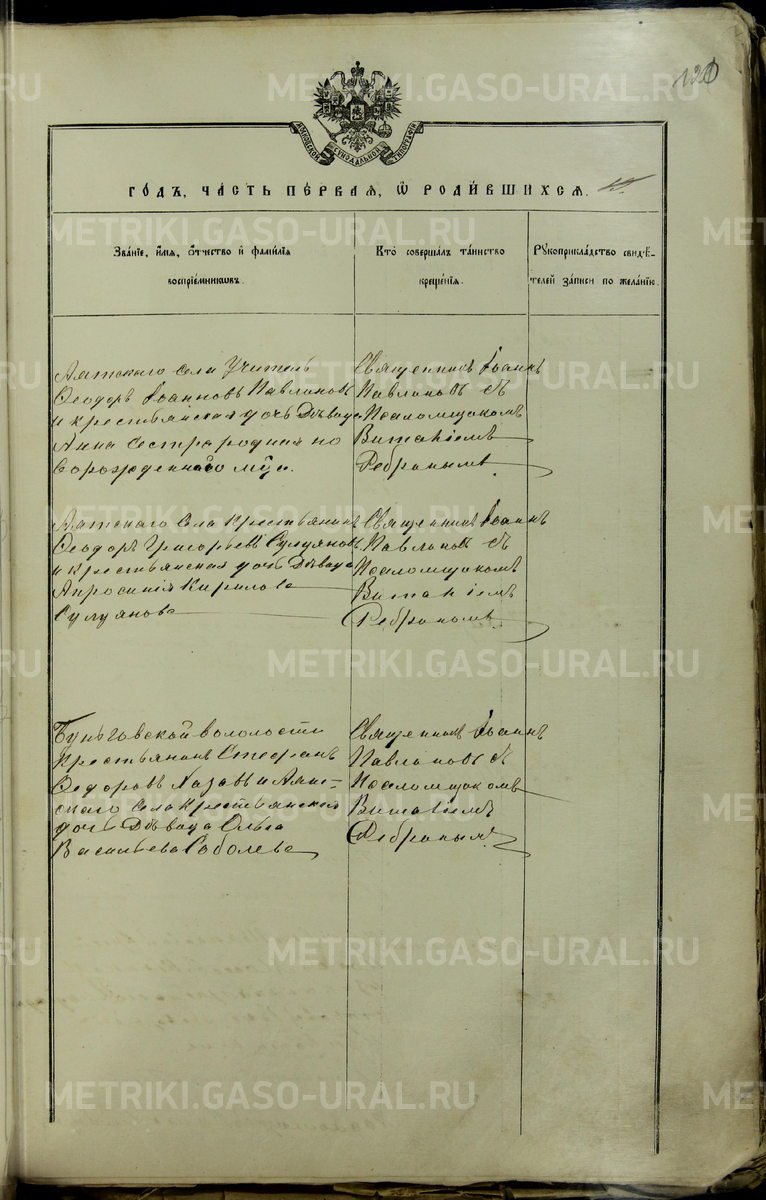 120
МОСКОВСКОЙ СѴНОДАЛЬНОЙ ТИПОГРАФІИ
ГО́ДЪ, ЧА́СТЬ ПЕ́РВАЯ, Ѡ҆ РОДИ́ВШИХСЯ.
Зва́ніе, и҆́мя, ѻ҆́тчество и҆ фами́лія
воспріе́мникωвъ.
Кто̀ соверша́лъ та́инство
креще́нія.
Рꙋкоприкла́дство свидѣ́-
телей за́писи по жела́нію.
Аятскаго села Учитель
Ѳеодоръ Іоанновъ Павлиновъ
и крестьянская дочь Дѣвица
Анна Сестра родная но
ворожденнаго
Священникъ Іоаннъ
Павлиновъ съ
Псаломщикомъ
Виталіемъ
Ребринымъ
Аятскаго Села Крестьянинъ
Ѳеодоръ Григорьевъ Сулуяновъ
и крестьянская дочь Дѣвица
Апросинія Кирилова
Сулуянова
Священникъ Іоаннъ
Павлиновъ съ
Псаломщикомъ
Виталіемъ
Ребринымъ
волости
Крестьянинъ Стефанъ
Ѳедоровъ и Аят-
скаго Села Крестьянская
дочь Дѣвица Ольга
Васильева Соболева
Священникъ Іоаннъ
Павлиновъ съ
Псаломщикомъ
Виталіемъ
Ребринымъ
METRIKI.GASO-URAL.RU